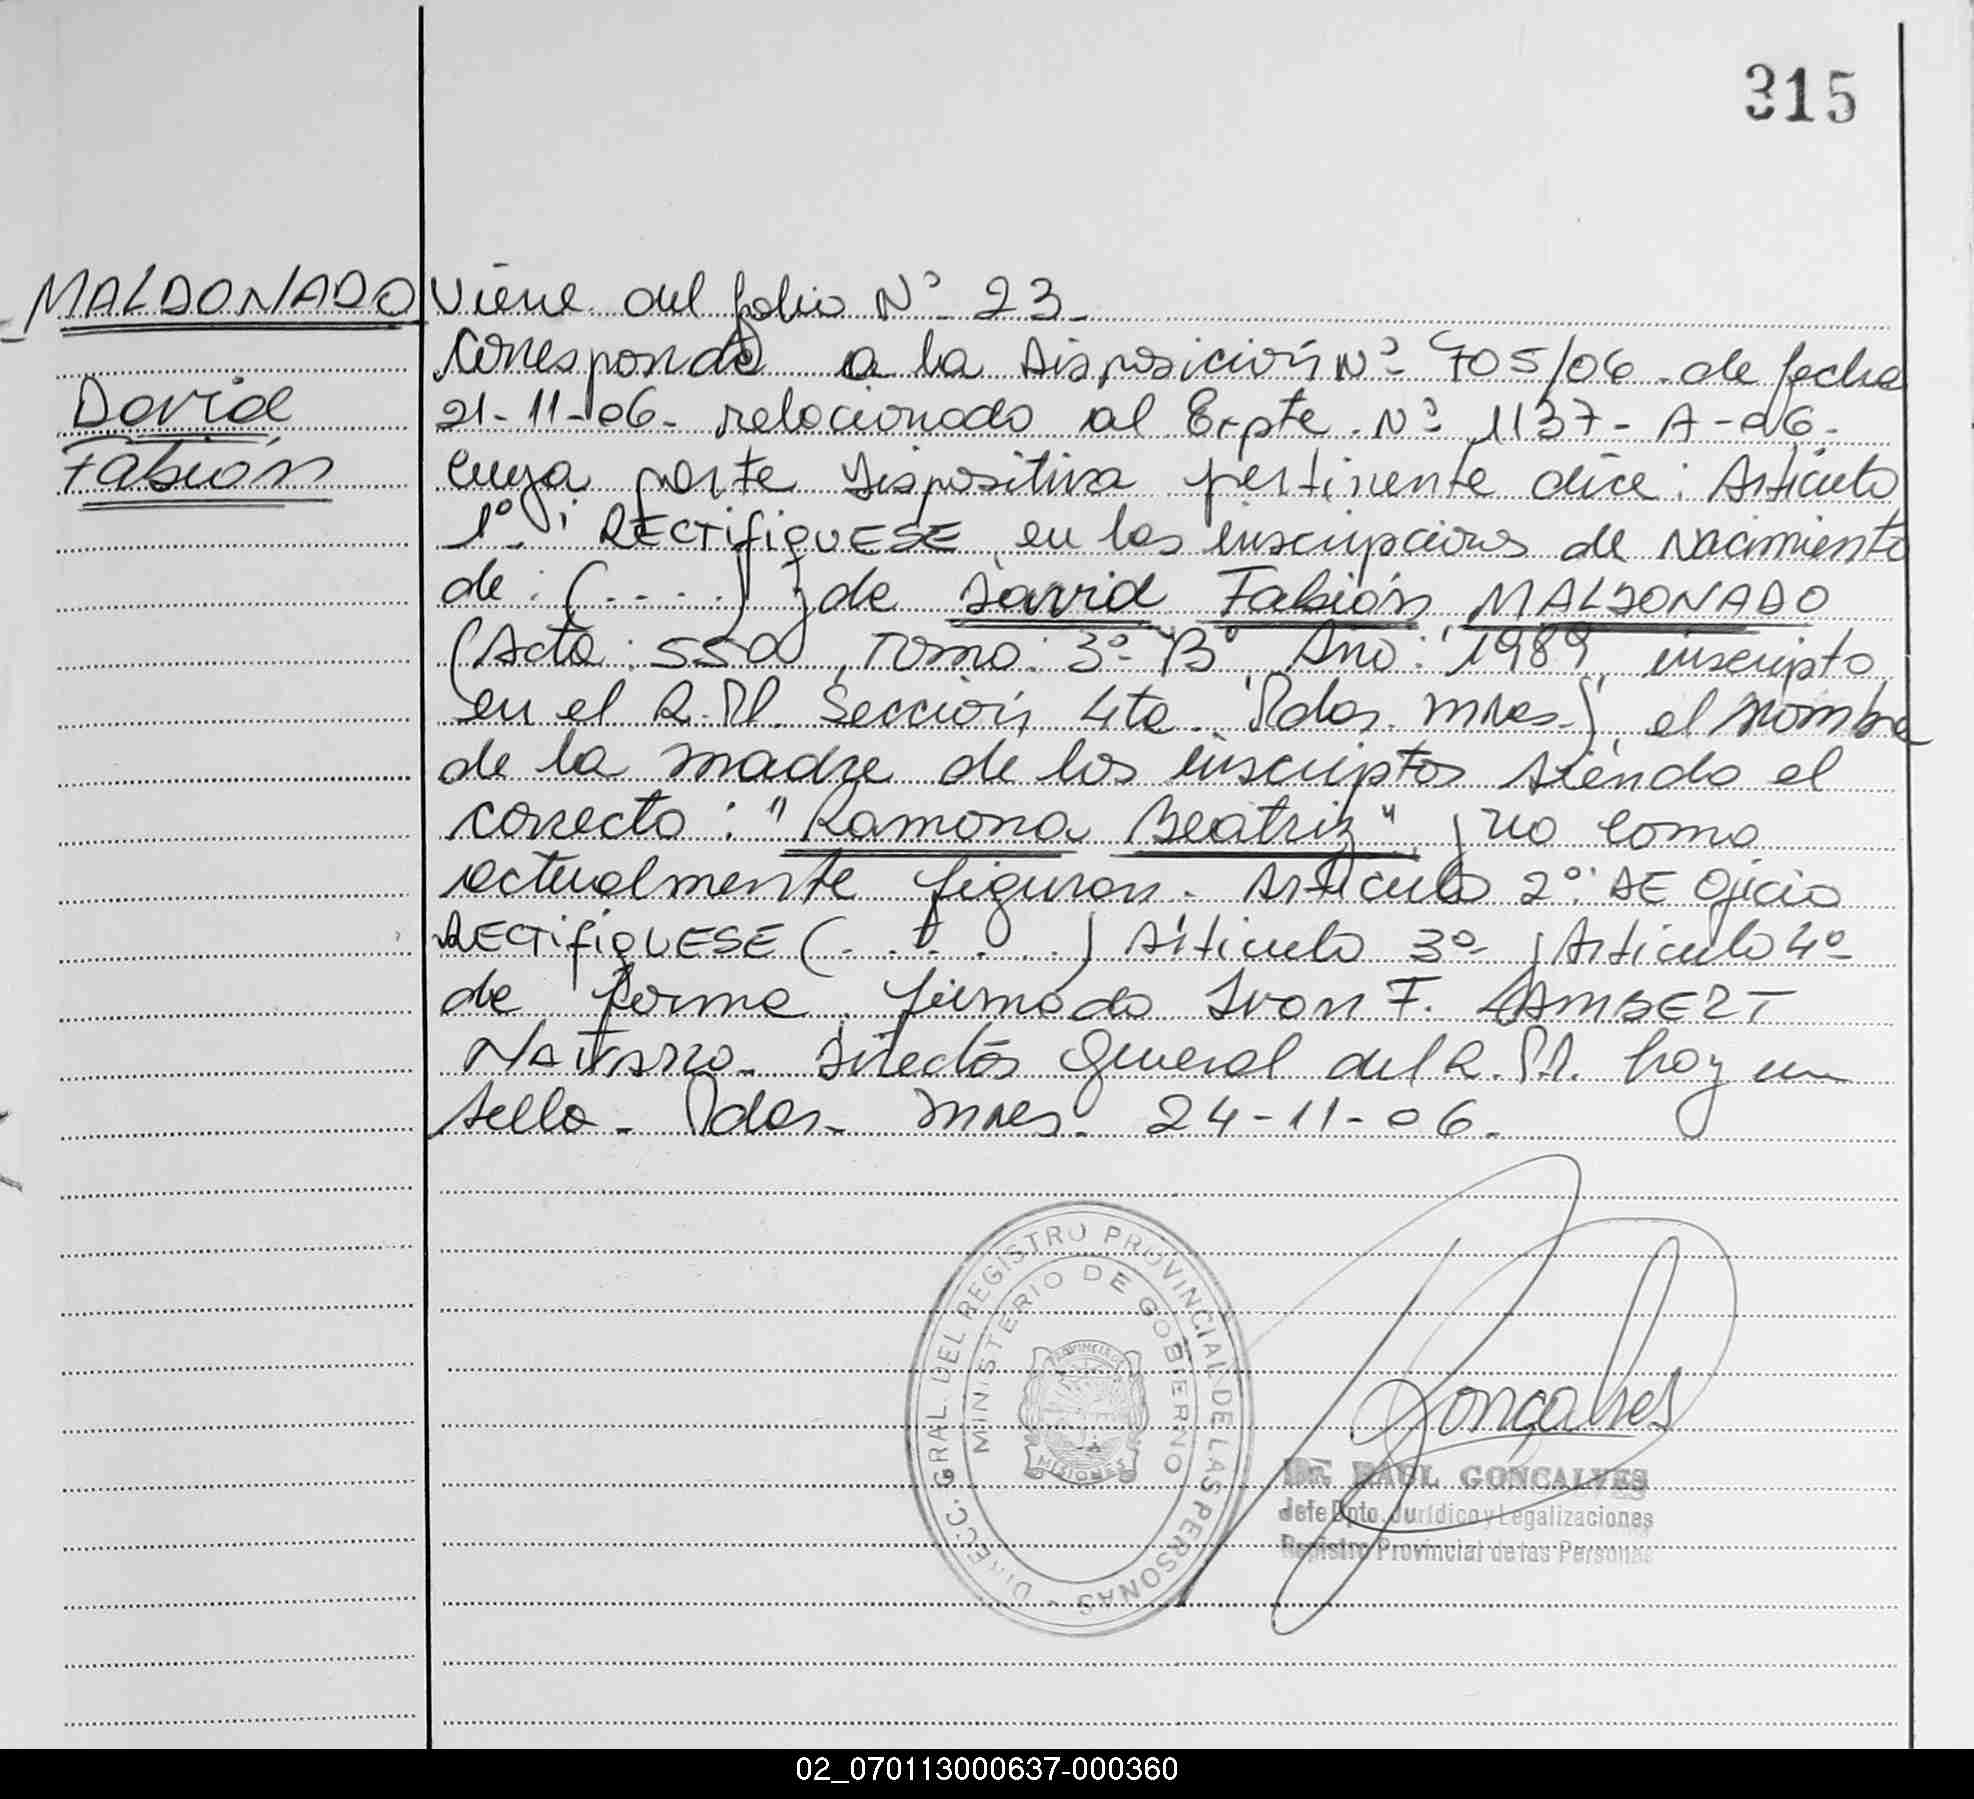 315
MALDONADO
David
Fabián
Viene del folio Nº 23-
Corresponde a la Disposición Nº 705/06 de fecha
21-11-06- relacionado al Expte. Nº 1137-A-06-
cuya parte Dispositiva pertinente dice: Artículo
1º: RECTIFIQUESE en las inscripciones de Nacimiento
de: (.....) ; de David Fabián MALDONADO
(Acta: 550, Tomo: 3º "B" Año: 1989 inscripto
en el R.P.P. Sección 4ta. Pdas. Mnes.), el nombre
de la madre de los inscriptos siendo el
correcto: "Ramona Beatriz" y no como
actualmente figuran. Artículo 2º: DE Oficio
RECTIFIQUESE (......) Artículo 3º y Artículo 4º
de forma. firmado Ivan F. LAMBERT
Navarro- Director General del R.P.P. hay un
sello- Pdas- Mnes- 24-11-06-
DIRECC. GRAL. DEL REGISTRO PROVINCIAL DE LAS PERSONAS
MINISTERIO DE GOBIERNO
MISIONES
Gonçalves
Dr. RAUL GONCALVES
Jefe Dpto. Jurídico y Legalizaciones
Registro Provincial de las Personas
02_070113000637-000360